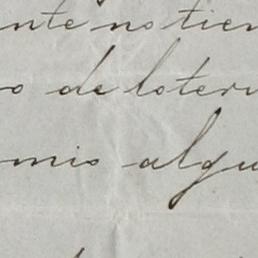 nte no tien
o de loter
mio algu